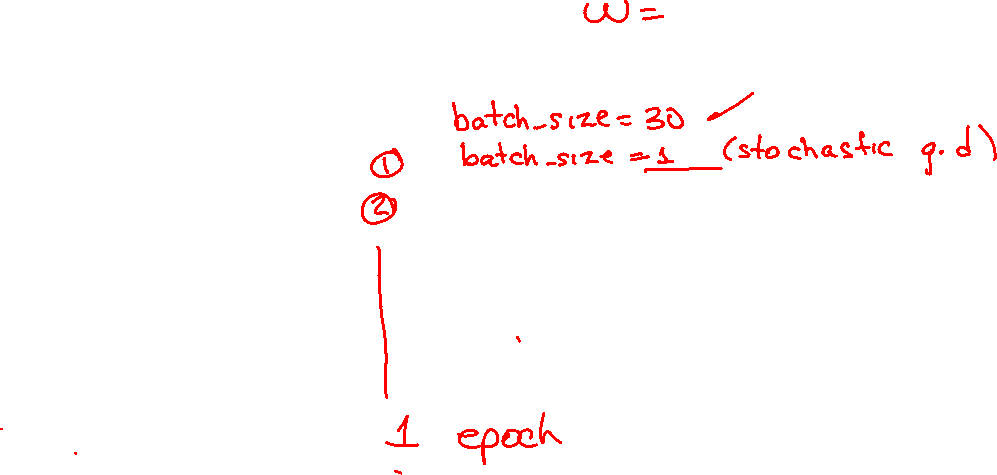 ω =
batch_size = 30
batch_size = 1 (stochastic g.d)
①
②
1 epoch